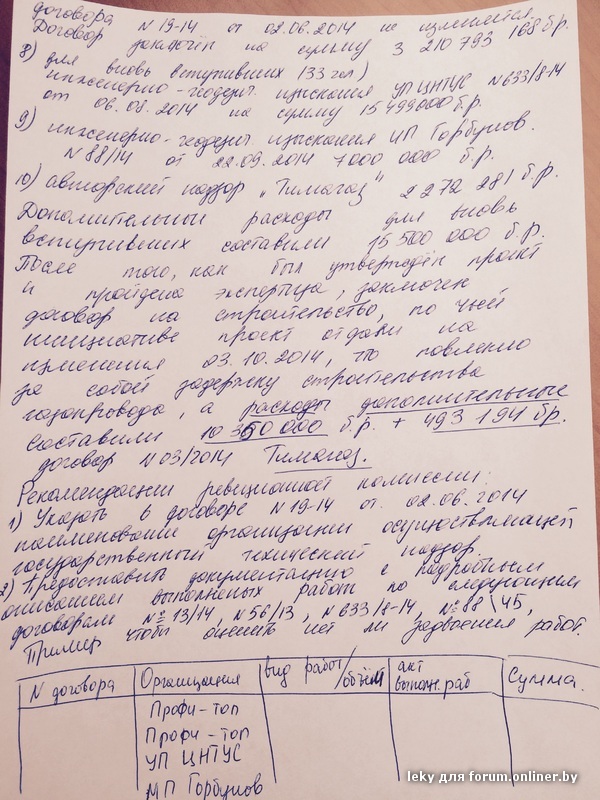 договора N 19-14 от 02.06.2014 не изменяется.
Договор заключён на сумму 3 210 793 168 б.р.
8) для вновь вступивших 133 чел)
инженерно-геодезич. изыскания УП ЦНТУС N 633/8-14
от 06.08.2014 на сумму 15 499 000 б.р.
9) инженерно-геодезич изыскания ИП Горбунов.
N 88/14 от 22.09.2014 7 000 000 б.р.
10) авторский надзор „Тимагаз" 2 272 281 б.р.
Дополнительные расходы для вновь
вступивших составили 15 500 000 б.р.
После того, как был утверждён проект
и пройдена экспертиза, заключен
договор на строительство, по чьей
инициативе проект отдали на
изменения 03.10.2014, что повлекло
за собой задержку строительства
газопровода, а расходы дополнительные
составили 10 350 000 б.р. + 493 194 бр.
договор N 03/2014 Тимагаз.
Рекомендации ревизионной комиссии:
1) Указать в договоре N 19-14 от 02.06.2014
наименование организации осуществляющей
государственный технический надзор.
2) Предоставить документацию с подробным
описанием выполненых работ по следующим
договорам №№ 13/14, N 56/13, N 633/8-14, № 88\45,
Пример чтобы оценить нет ли задвоения работ.
N договора Организация вид работ/объём акт выполн. раб Сумма.
Профи-топ
Профи-топ
УП ЦНТУС
ИП Горбунов
leky для forum.onliner.by